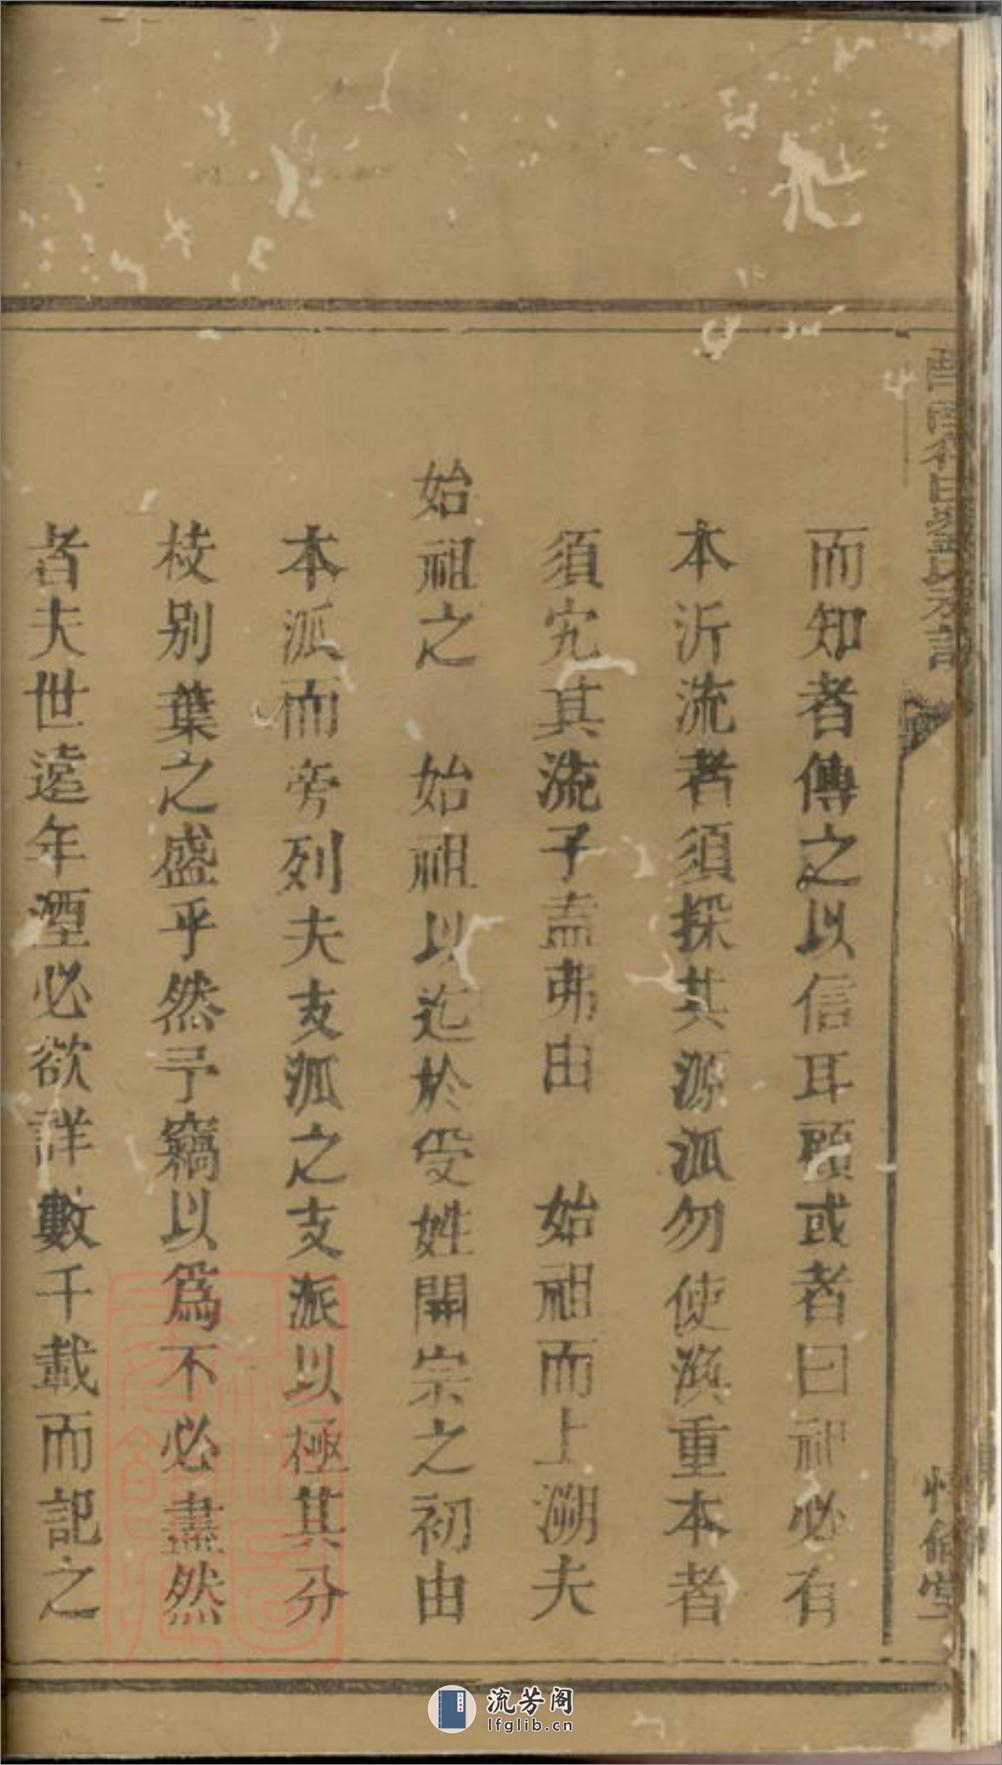 而知者傳之以信耳顧或者曰祖必有
本沂流者須探其源派勿使演重本者
須究其流子盍弗由　始祖而上溯夫
始祖之　始祖以迄於受姓開宗之初由
本派而旁列夫支派之支派以極其分
枝别葉之盛乎然予竊以爲不必盡然
者夫世遠年湮必欲詳數千載而記之
流芳阁
lfglib.cn